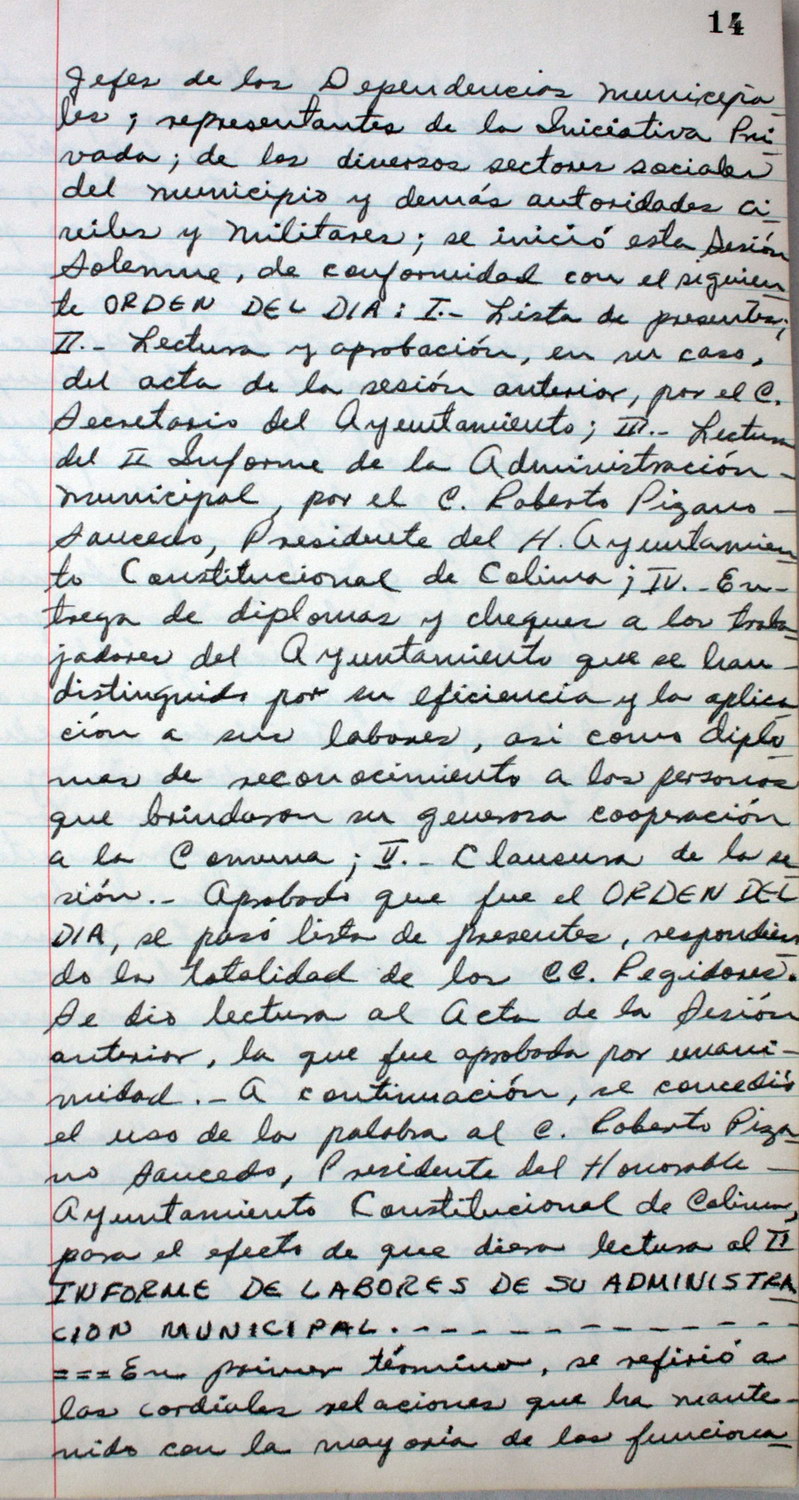 14
Jefes de las Dependencias municipa
les; representantes de la Iniciativa Pri
vada; de los diversos sectores sociales
del municipio y demás autoridades ci
viles y militares; se inició esta Sesión
Solemne, de conformidad con el siguien
te ORDEN DEL DIA: I.- Lista de presentes;
II.- Lectura y aprobación, en su caso,
del acta de la sesión anterior, por el C.
Secretario del Ayuntamiento; III.- Lectura
del II Informe de la Administración -
municipal, por el C. Roberto Pizano -
Saucedo, Presidente del H. Ayuntamien
to Constitucional de Colima; IV.- En-
trega de diplomas y cheques a los traba
jadores del Ayuntamiento que se han -
distinguido por su eficiencia y la aplica
ción a sus labores, asi como diplo
mas de reconocimiento a las personas
que brindaron su generosa cooperación
a la Comuna; V.- Clausura de la se
sión.- Aprobado que fue el ORDEN DEL
DIA, se pasó lista de presentes, respondien
do la totalidad de los CC. Regidores.
Se dio lectura al Acta de la Sesión
anterior, la que fue aprobada por unani-
midad.- A continuación, se concedió
el uso de la palabra al C. Roberto Piza
no Saucedo, Presidente del Honorable -
Ayuntamiento Constitucional de Colima,
para el efecto de que diera lectura al II
INFORME DE LABORES DE SU ADMINISTRA
CION MUNICIPAL. - - - - - - - - - - - -
===En primer término, se refirió a
las cordiales relaciones que ha mante-
nido con la mayoría de los funciona